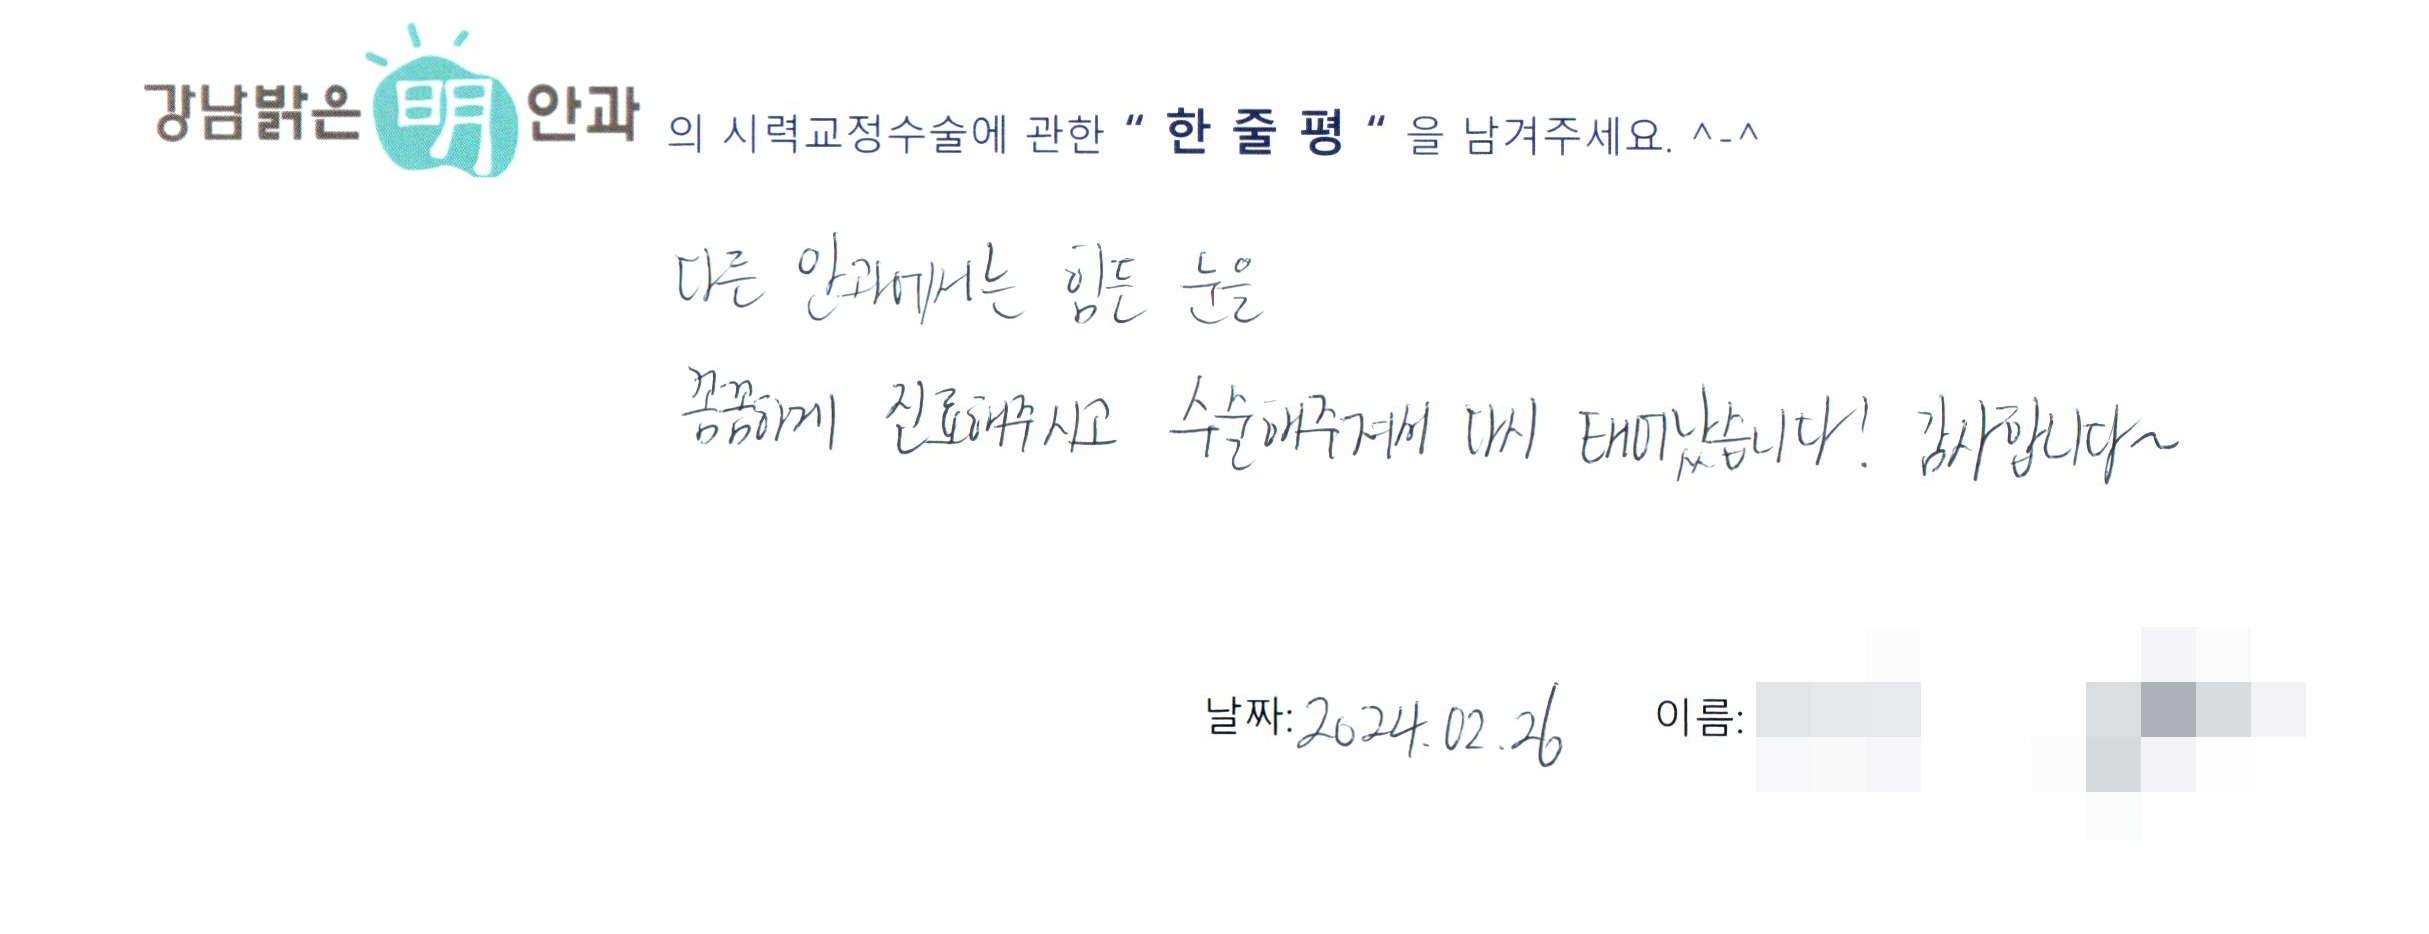 강남밝은明안과 의 시력교정수술에 관한 “ 한 줄 평 “ 을 남겨주세요. ^-^
다른 안과에서는 힘든 눈을
꼼꼼하게 진료해주시고 수술해주셔서 다시 태어났습니다! 감사합니다~
날짜: 2024.02.26 이름: